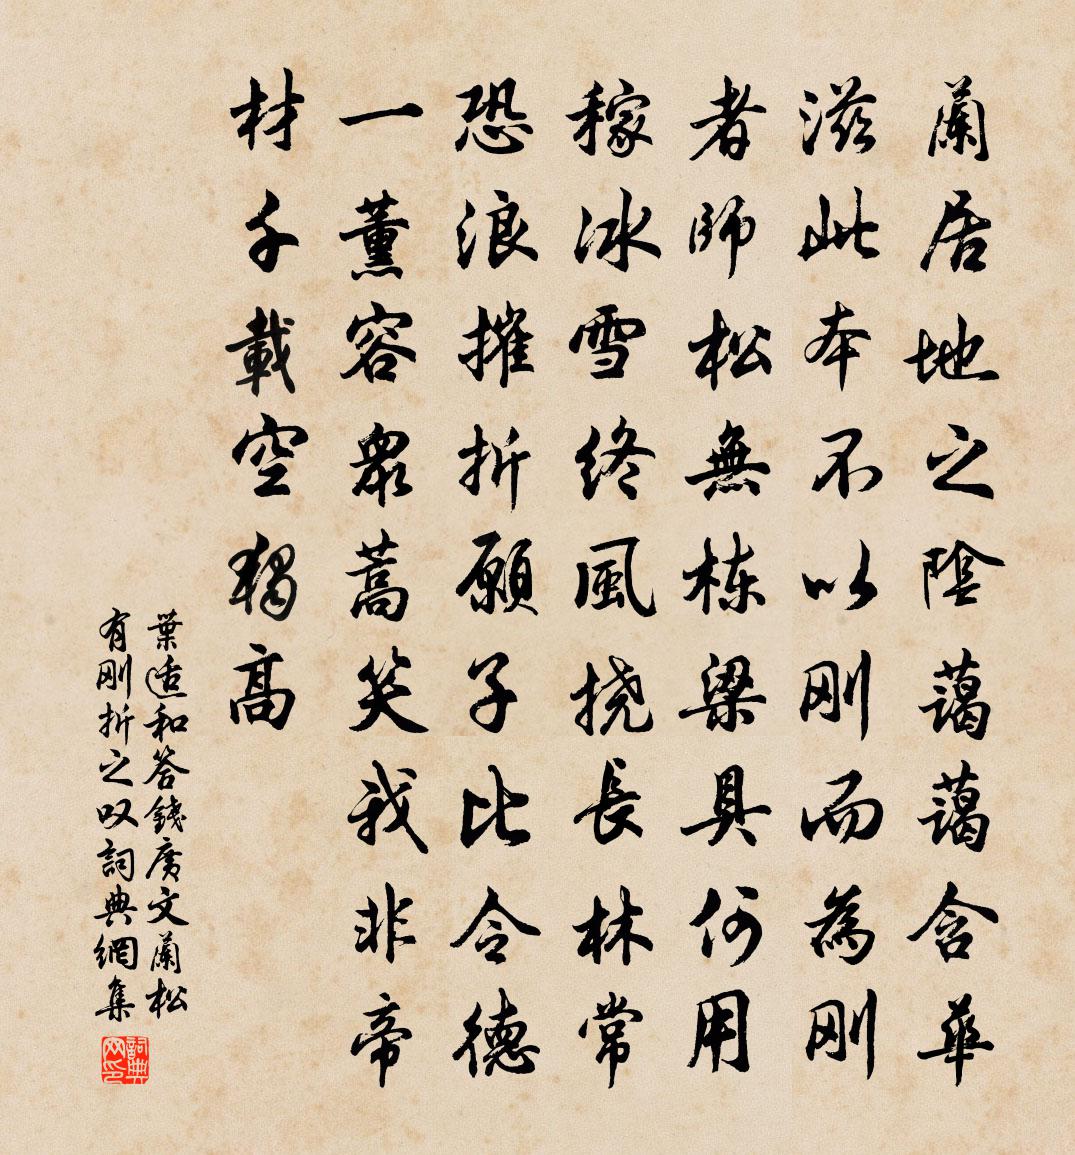 蘭居地之陰藹藹含華
滋此本不以剛而為剛
者師松無棟梁具何用
稼冰雪終風撓長林常
恐浪摧折願子比令德
一薰容衆蒿笑我非帝
材千載空獨高
葉適和答錢廣文蘭松
有剛折之叹詞典網集
詞典
网印